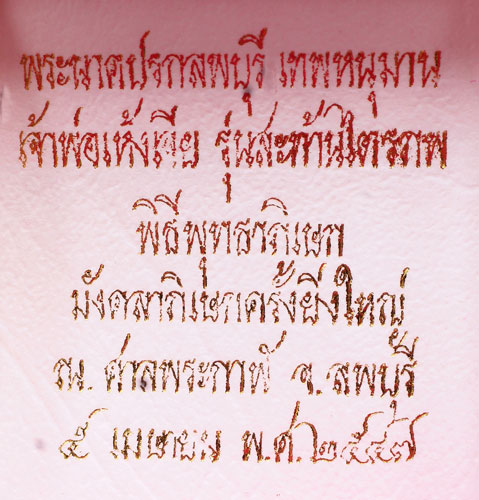 พระนาคปรกลพบุรี เทพหนุมาน
เจ้าพ่อเห้งเจีย รุ่นสะท้านไตรภพ
พิธีพุทธาภิเษก
มังคลาภิเษกครั้งยิ่งใหญ่
ณ. ศาลพระกาฬ จ. ลพบุรี
๕ เมษายน พ.ศ.๒๕๔๗